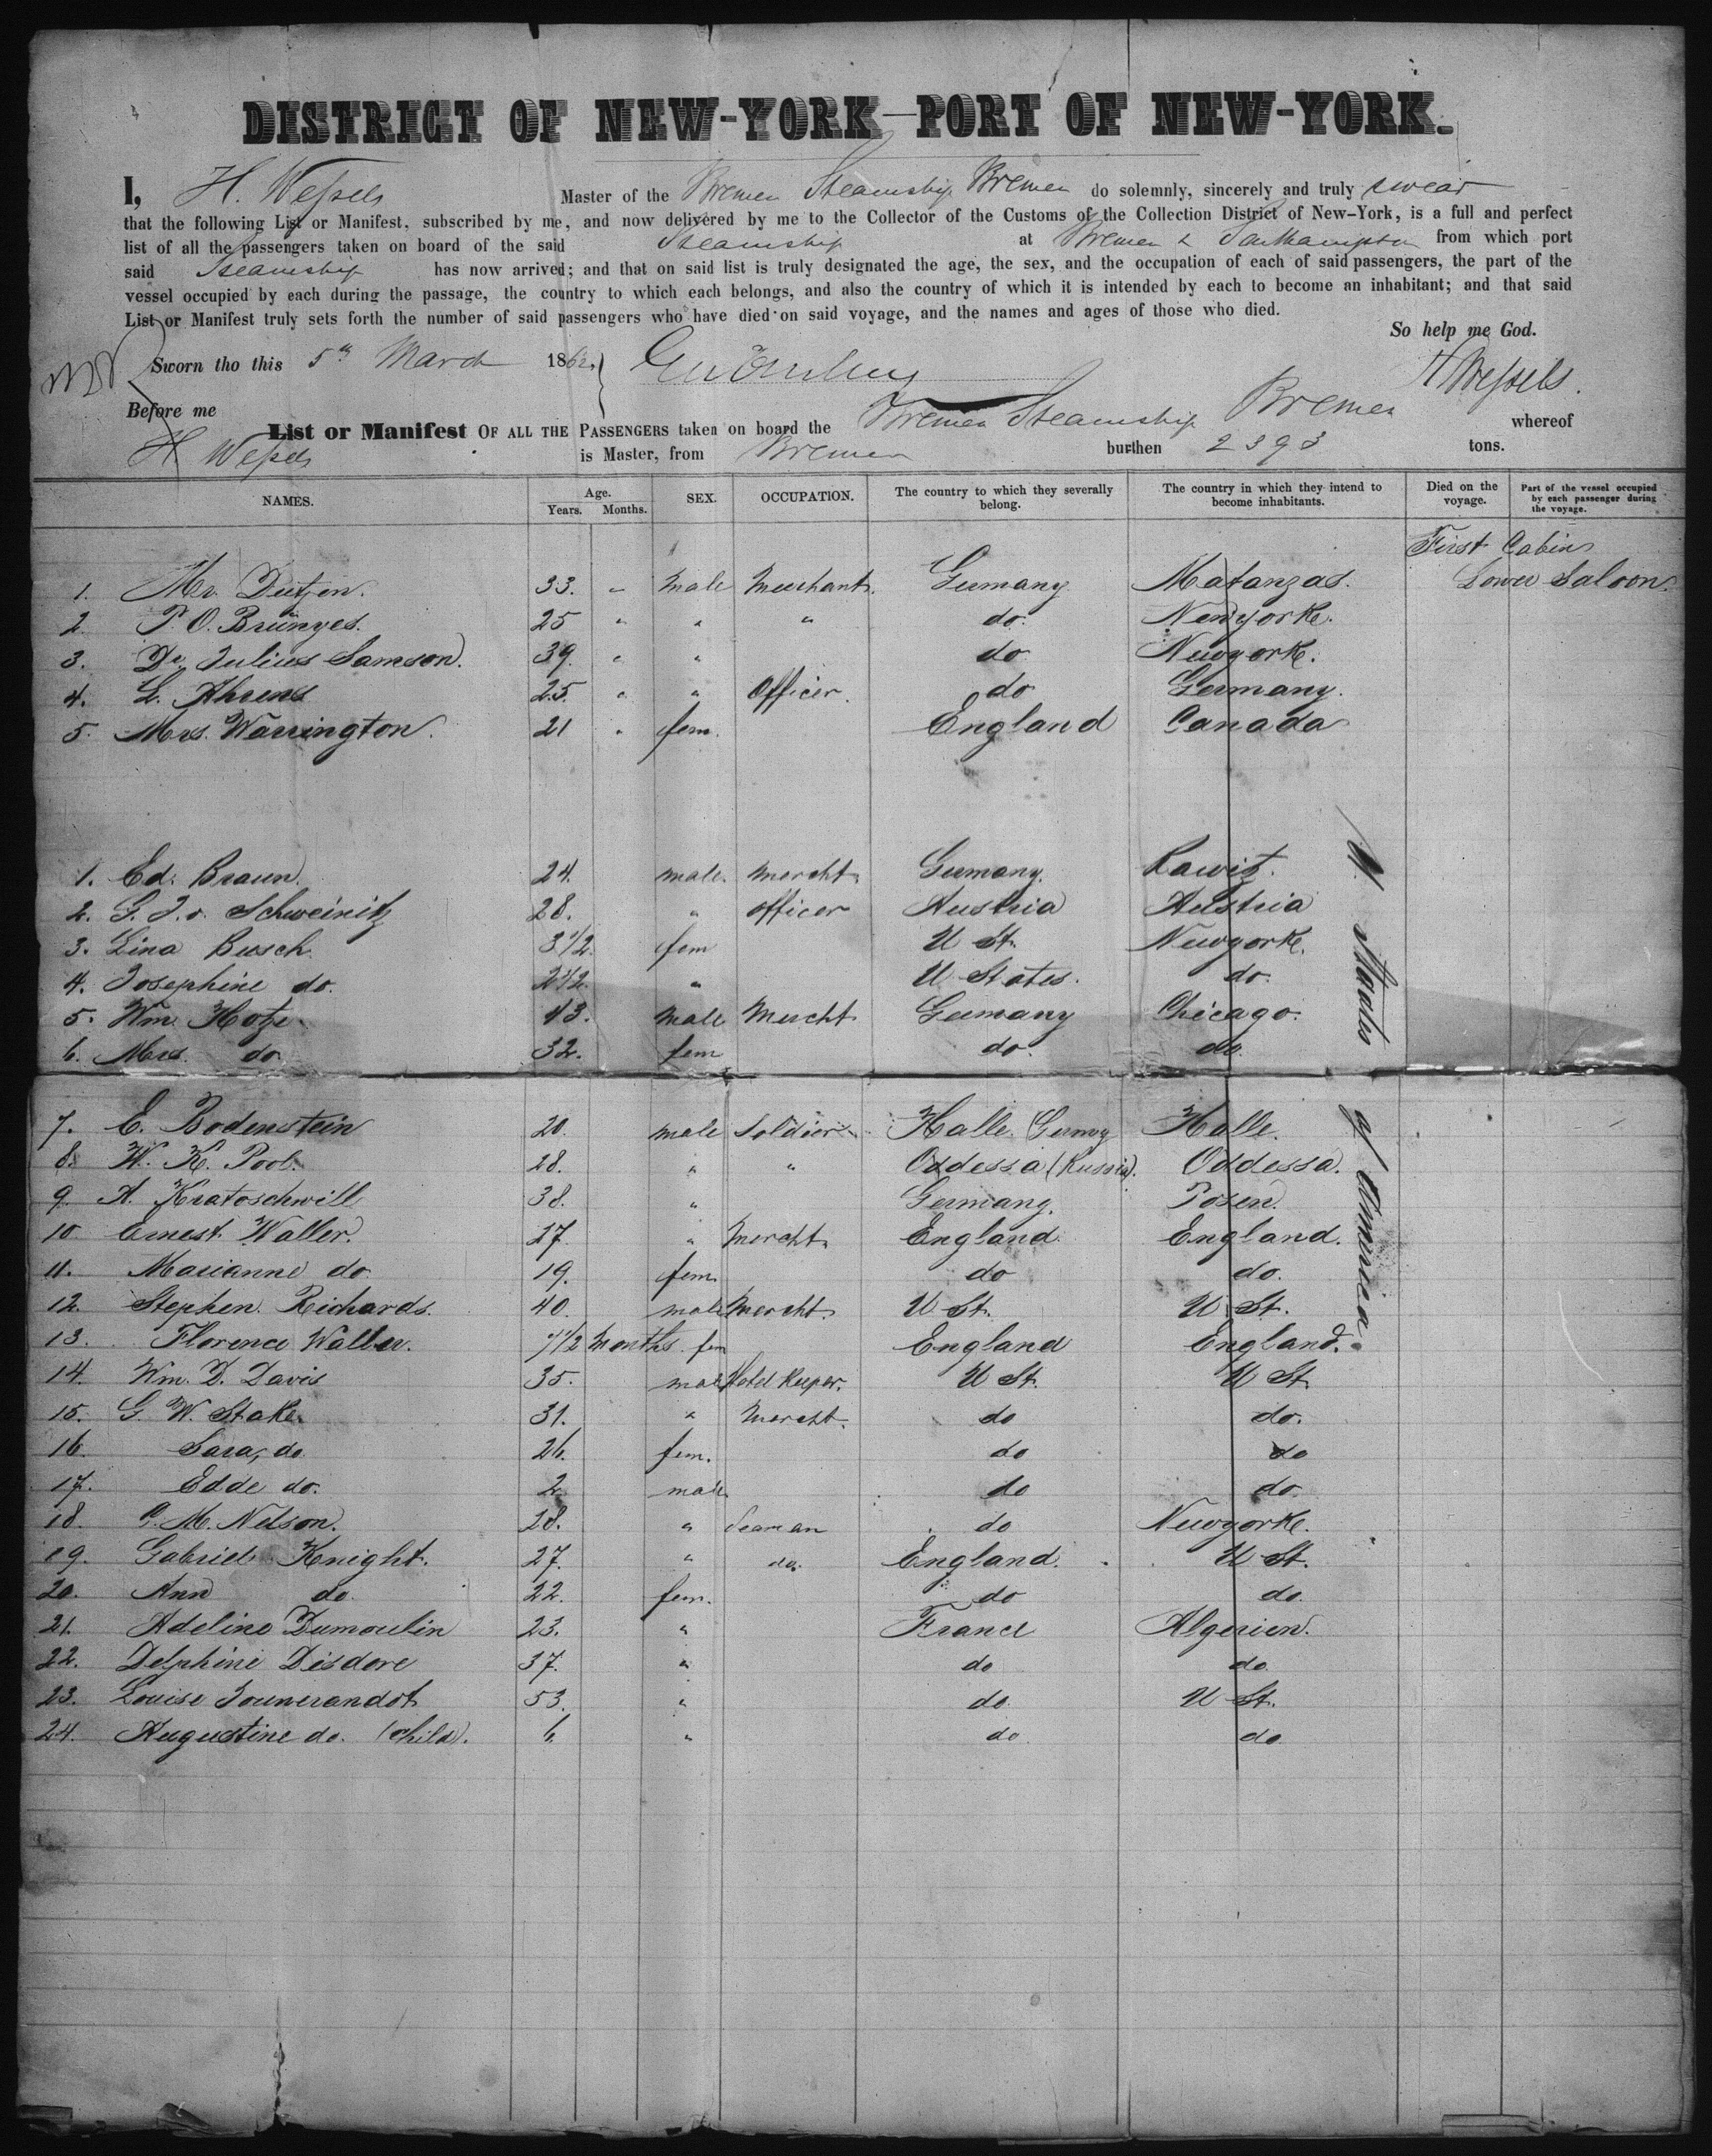 DISTRICT OF NEW-YORK—PORT OF NEW-YORK.
I, H. Wessels Master of the Bremen Steamship Bremen do solemnly, sincerely and truly swear
that the following List or Manifest, subscribed by me, and now delivered by me to the Collector of the Customs of the Collection District of New-York, is a full and perfect
list of all the passengers taken on board of the said Steamship at Bremen & Southampton from which port
said Steamship has now arrived; and that on said list is truly designated the age, the sex, and the occupation of each of said passengers, the part of the
vessel occupied by each during the passage, the country to which each belongs, and also the country of which it is intended by each to become an inhabitant; and that said
List or Manifest truly sets forth the number of said passengers who have died on said voyage, and the names and ages of those who died.
So help me God.
Sworn tho this 5th March 1862, H Wessels.
Before me
List or Manifest OF ALL THE PASSENGERS taken on board the Bremen Steamship Bremen whereof
H. Wessels is Master, from Bremen burthen 2393 tons.
NAMES. Age. Years. Months. SEX. OCCUPATION. The country to which they severally belong. The country in which they intend to become inhabitants. Died on the voyage. Part of the vessel occupied by each passenger during the voyage.
First Cabin
1. Mr. Dutzen. 33. " male Merchant. Germany Matanzas. Lower Saloon.
2. P. O. Brünjes. 25 " " " do. Newyorke.
3. Dr. Julius Samson. 39. " " do Newyorke.
4. L. Ahrens 25. " " Officer. do Germany.
5. Mrs. Warrington. 21 " fem. England Canada
1. Ed. Braun. 24. male. mercht. Germany. Rawitz.
2. G. J. v. Schweinitz 28. " officer Austria Austria
3. Lina Busch 3 1/2. fem U St. Newyorke.
4. Josephine do. 2 1/2. " U States. do.
5. Wm. Hotze. 43. male Mercht Germany Chicago.
6. Mrs. do 32. fem do. do.
7. E. Bodenstein 20. male Soldier. Halle. Germy Halle.
8. W. K. Pool. 28. " " Oddessa (Russia). Oddessa.
9. A. Kratoschwill 38. " Germany. Posen.
10 Ernest Waller. 27 " Mercht. England England.
11. Marianne do. 19. fem. do do.
12. Stephen Richards. 40. male Mercht. U St. U St.
13. Florence Waller. 7 1/2 Months. fem England England.
14. Wm. D. Davis 35. male Hotel Keeper. U St. U St
15. G. W. Stake. 31. " Mercht. do do.
16. Sara, do. 26. fem. do do
17. Edde do. 2 male. do do.
18. G. M. Nelson. 28. " Seaman do Newyorke.
19. Gabriel Knight. 27. " do. England. U St.
20. Ann do. 22. fem. do do.
21. Adeline Dumoulin 23. " France Algerien.
22. Delphine Disdore 37. " do do
23. Louise Jounerandot 53. " do. U St.
24. Augustine do. (Child). 6 " do do
U. States of America.